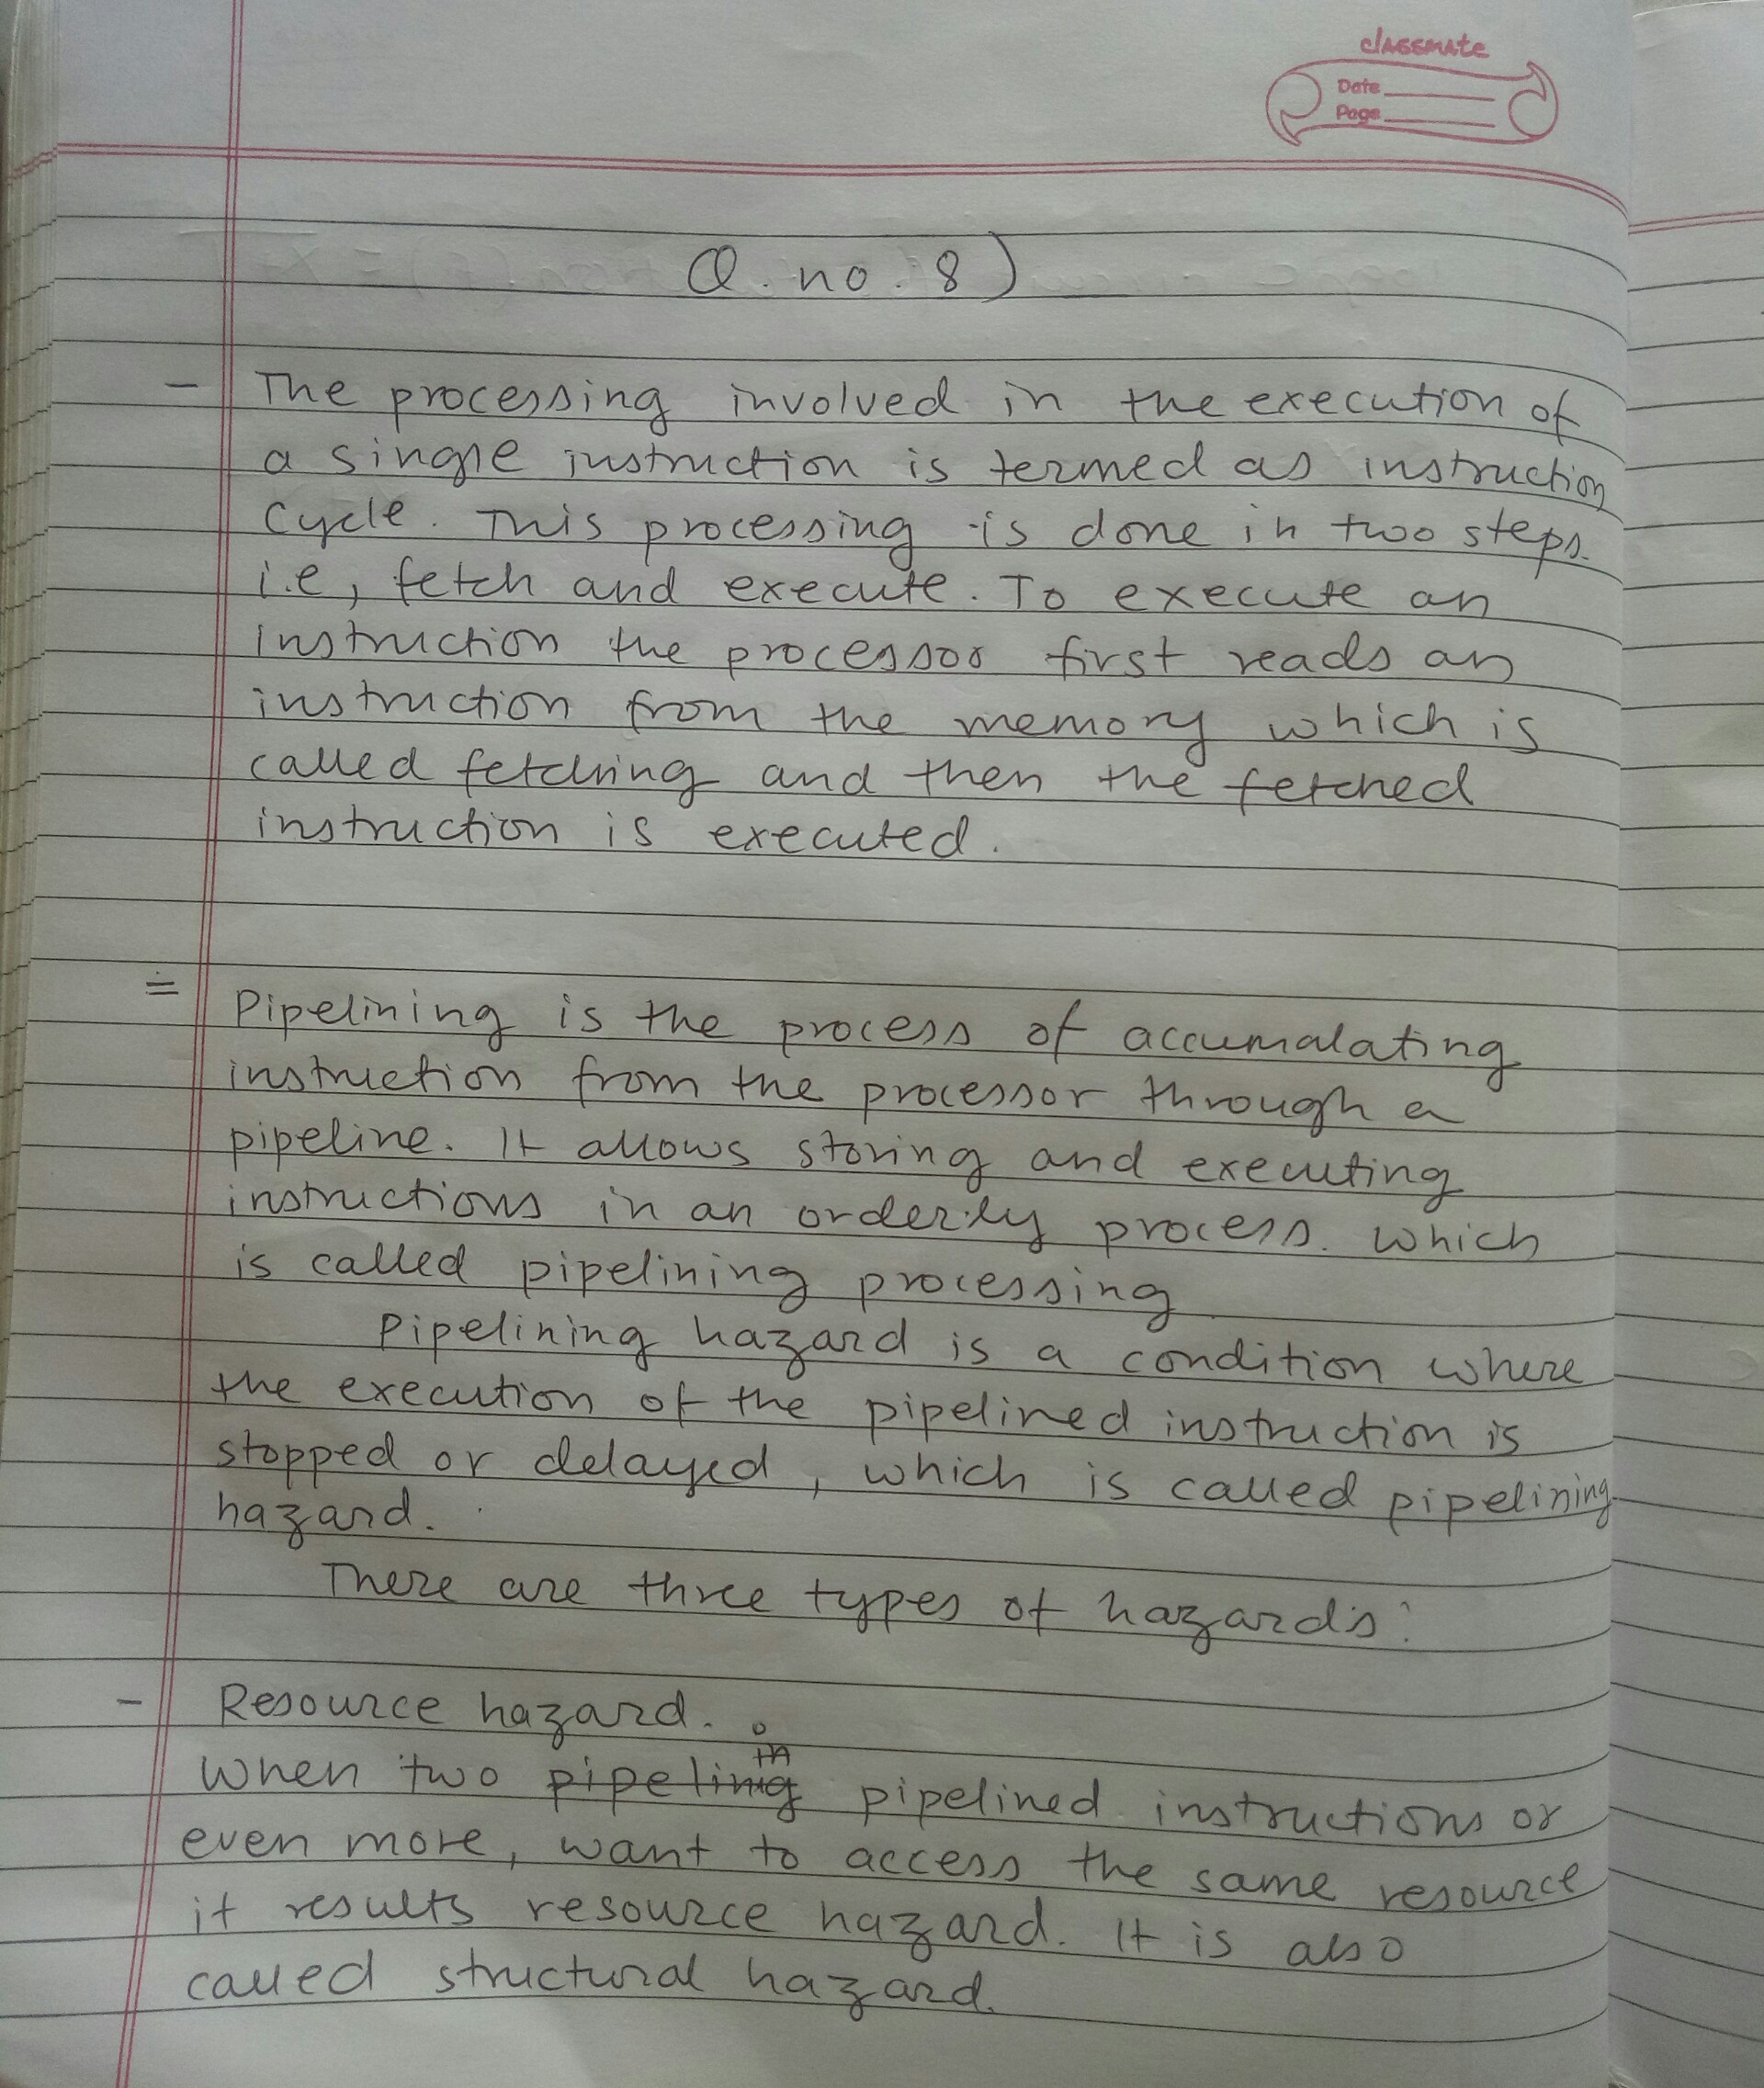 classmate
Date
Page
Q. no. 8)
- The processing involved in the execution of
a single instruction is termed as instruction
cycle. This processing is done in two steps.
i.e, fetch and execute. To execute an
instruction the processor first reads an
instruction from the memory which is
called fetching and then the fetched
instruction is executed.
= Pipelining is the process of accumalating
instruction from the processor through a
pipeline. It allows storing and executing
instructions in an orderly process. which
is called pipelining processing
Pipelining hazard is a condition where
the execution of the pipelined instruction is
stopped or delayed, which is called pipelining
hazard.
There are three types of hazards:
- Resource hazard.
When two pipelining pipelined instructions or
even more, want to access the same resource
it results resource hazard. It is also
called structural hazard.